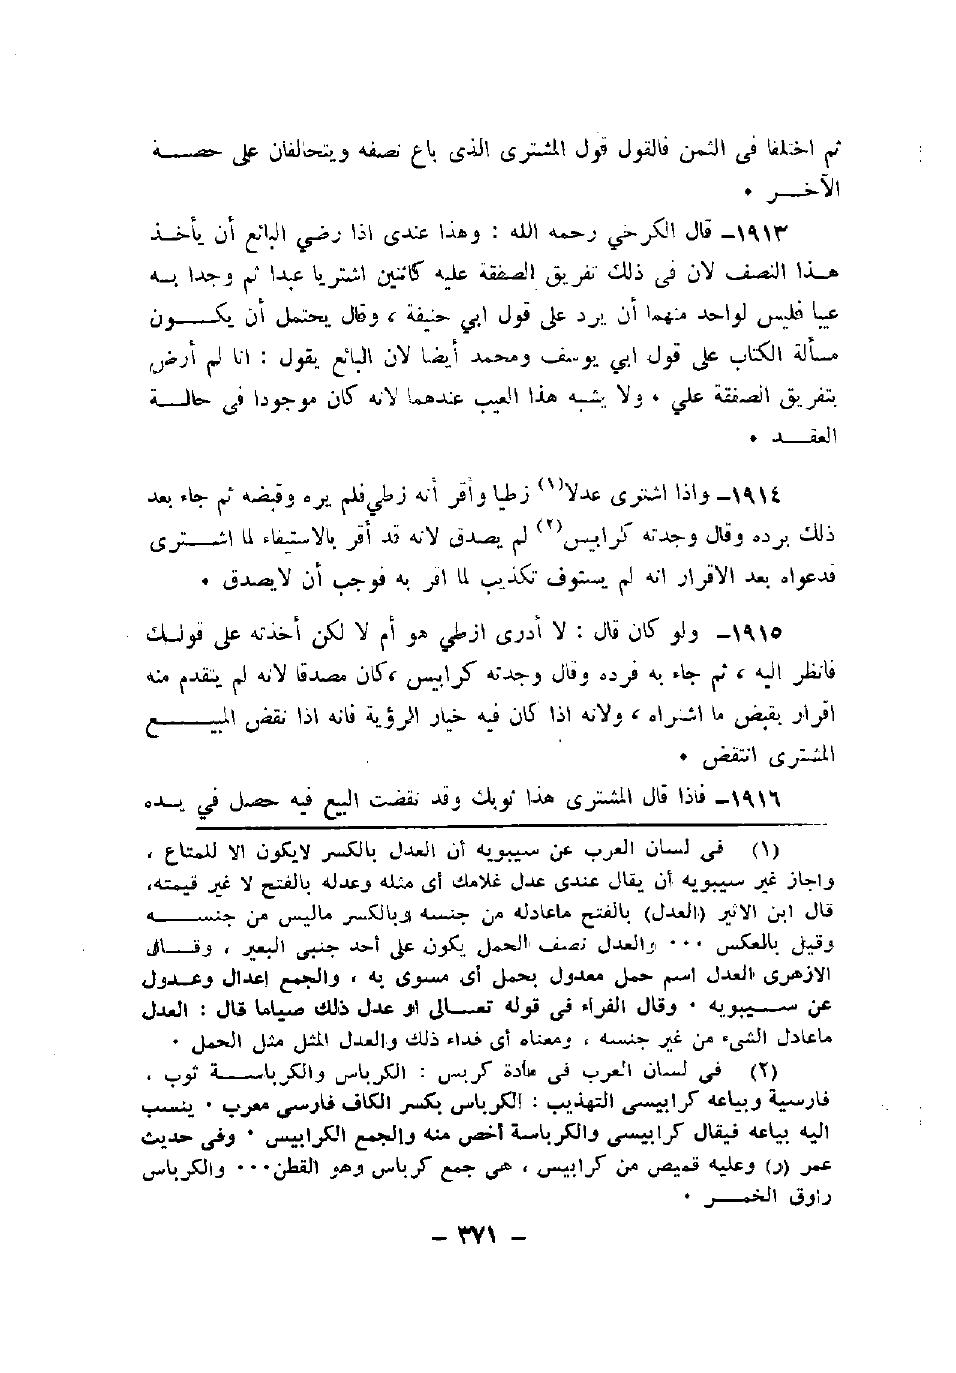 ثم اختلفا فى الثمن فالقول قول المشترى الذى باع نصفه ويتحالفان على حصة
الآخر ٠
١٩١٣ـ قال الكرخي رحمه الله : وهذا عندى اذا رضي البائع أن يأخذ
هذا النصف لان فى ذلك تفريق الصفقة عليه كاثنين اشتريا عبدا ثم وجدا به
عيبا فليس لواحد منهما أن يرد على قول ابي حنيفة ، وقال يحتمل أن يكون
مسألة الكتاب على قول ابي يوسف ومحمد أيضا لان البائع يقول : انا لم أرض
بتفريق الصفقة علي ٠ ولا يشبه هذا العيب عندهما لانه كان موجودا فى حالة
العقد ٠
١٩١٤ـ واذا اشترى عدلا(١) زطيا وأقر أنه زطي فلم يره وقبضه ثم جاء بعد
ذلك برده وقال وجدته كرابيس(٢) لم يصدق لانه قد أقر بالاستيفاء لما اشترى
فدعواه بعد الاقرار انه لم يستوف تكذيب لما اقر به فوجب أن لايصدق ٠
١٩١٥ـ ولو كان قال : لا أدرى ازطي هو أم لا لكن أخذته على قولك
فانظر اليه ، ثم جاء به فرده وقال وجدته كرابيس ،كان مصدقا لانه لم يتقدم منه
اقرار بقبض ما اشتراه ، ولانه اذا كان فيه خيار الرؤية فانه اذا نقض البيع
المشترى انتقض ٠
١٩١٦ـ فاذا قال المشترى هذا ثوبك وقد نقضت البيع فيه حصل في يده
(١) فى لسان العرب عن سيبويه أن العدل بالكسر لايكون الا للمتاع ،
واجاز غير سيبويه أن يقال عندى عدل غلامك أى مثله وعدله بالفتح لا غير قيمته،
قال ابن الاثير (العدل) بالفتح ماعادله من جنسه وبالكسر ماليس من جنسه
وقيل بالعكس ٠٠٠ والعدل نصف الحمل يكون على أحد جنبي البعير ، وقال
الازهرى العدل اسم حمل معدول بحمل أى مسوى به ، والجمع اعدال وعدول
عن سيبويه ٠ وقال الفراء فى قوله تعالى او عدل ذلك صياما قال : العدل
ماعادل الشيء من غير جنسه ، ومعناه أى فداء ذلك والعدل المثل مثل الحمل ٠
(٢) فى لسان العرب فى مادة كربس : الكرباس والكرباسة ثوب ،
فارسية وبياعه كرابيسى التهذيب : الكرباس بكسر الكاف فارسي معرب ٠ ينسب
اليه بياعه فيقال كرابيسى والكرباسة أخص منه والجمع الكرابيس ٠ وفى حديث
عمر (ر) وعليه قميص من كرابيس ، هي جمع كرباس وهو القطن٠٠٠ والكرباس
راوق الخمر ٠
ـ ٣٧١ ـ